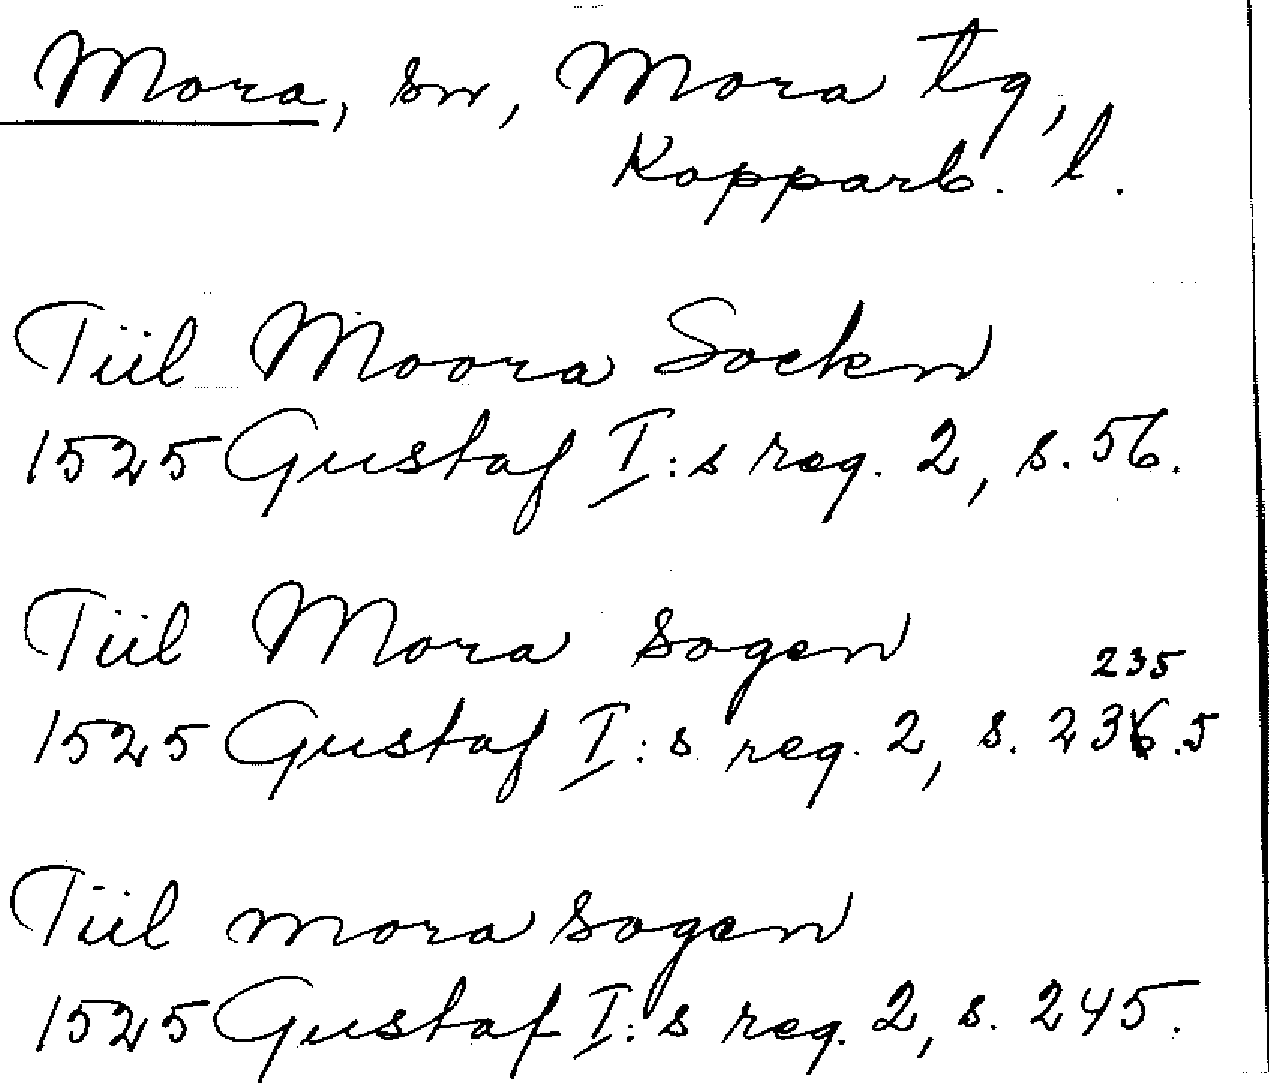 Mora, sn, Mora tg,
Kopparb. l.
Tiil Moora Sockn
1525 Gustaf I:s reg. 2, s. 56.
Tiil Mora sogen
235
1525 Gustaf I:s reg. 2, s. 236.5
Tiil mora sogen
1525 Gustaf I:s reg. 2, s. 245.